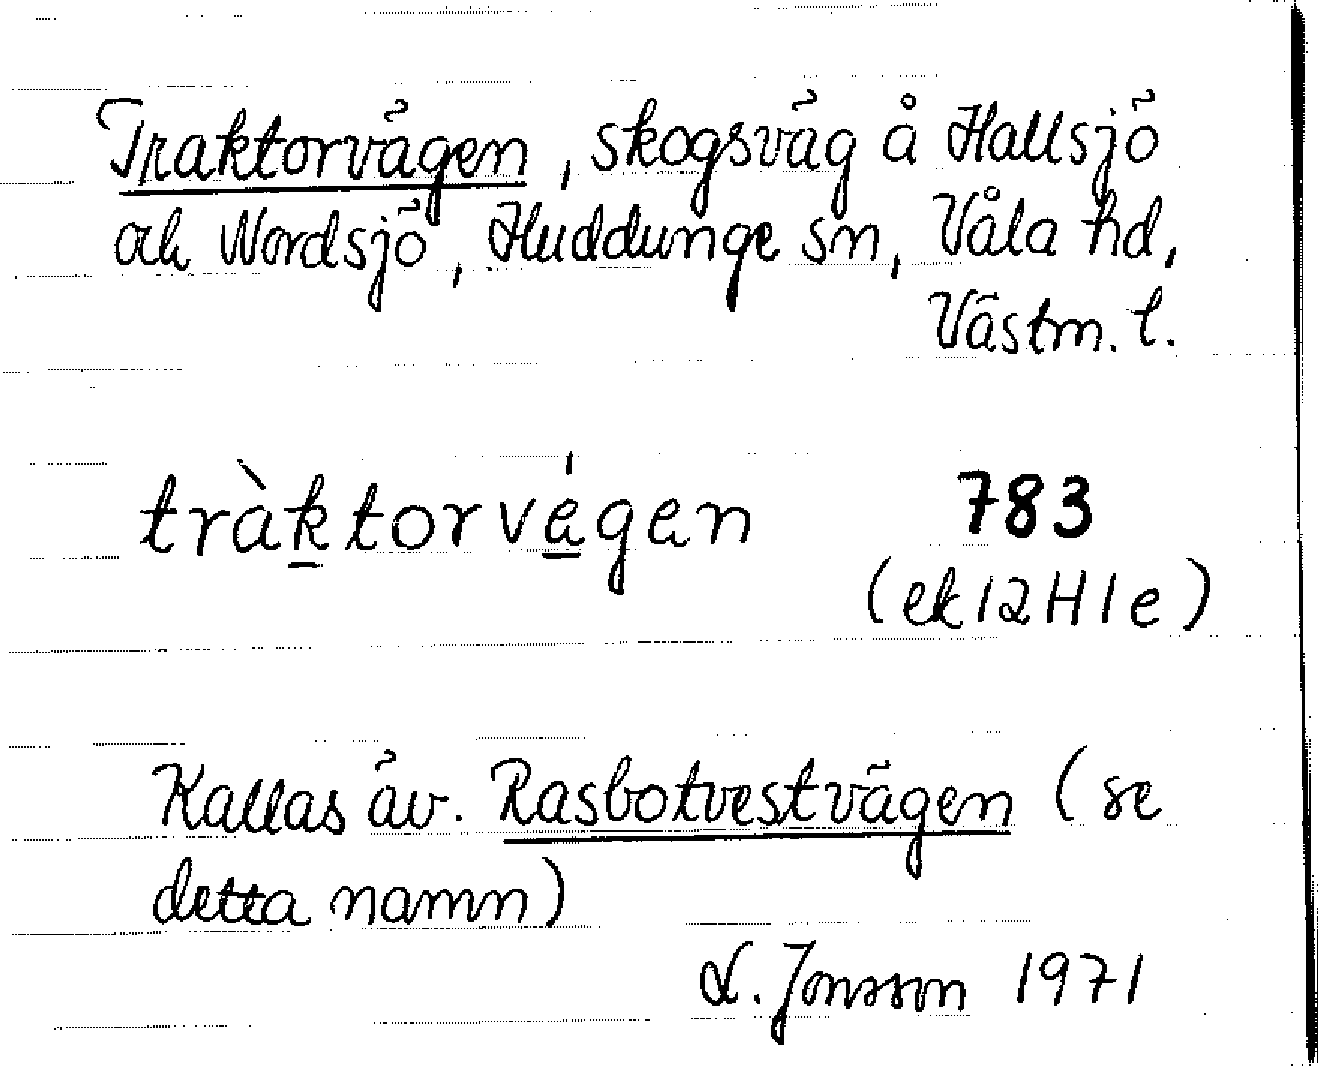 Traktorvägen, skogsväg å Hallsjö
och Nordsjö, Huddunge sn, Våla hd,
Västm. l.
tràktorvégen 783
(ek 12 H 1 e)
Kallas äv. Rasbotvestvägen (se
detta namn)
L. Jonsson 1971